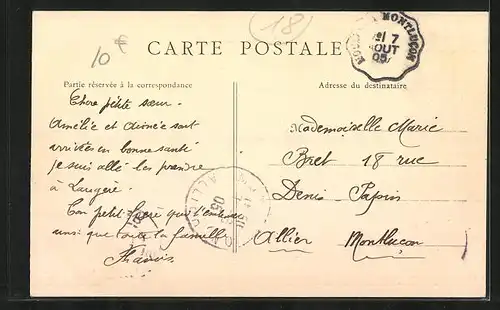 (18)
10 €
CARTE POSTALE
MONTLUÇON
7
OUT
05
Partie réservée à la correspondance
Adresse du destinataire
Chère petite sœur.
Amélie et sont
arrivées en bonne santé
je suis allé les prendre
à
Ton petit frère qui t'embrasse
ainsi que toute la famille
Mademoiselle Marie
Bret 18 rue
Denis Papin
Allier Montlucon
ALLIER
05